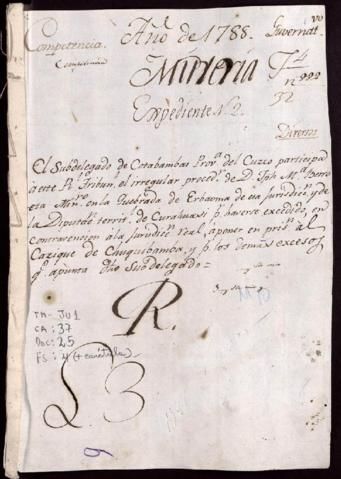 Competencia.
Año de 1788.
Guvernat.vo
Minería
Expediente N. 2.
32
Diversos
El Subdelegado de Cotabambas Prov.a del Cuzco participa
a este R.l Tribun.l el irregular proced.r de D. Jph M.a Berro
eta Min.ro en la Quebrada de de su Jurisdic.n y de
la Diputac.n territ.l de Curahuasi p.r haverse excedido, en
contravencion à la Jurisdic.n real, a poner en pris.n al
Cazique de Chuquibamba, y p.r los demas excesos
q.e apunta dho Subdelegado =
R.
TM- JU1
CA: 37
DOC: 25
FS: 4 (+ carátula)
L. 3